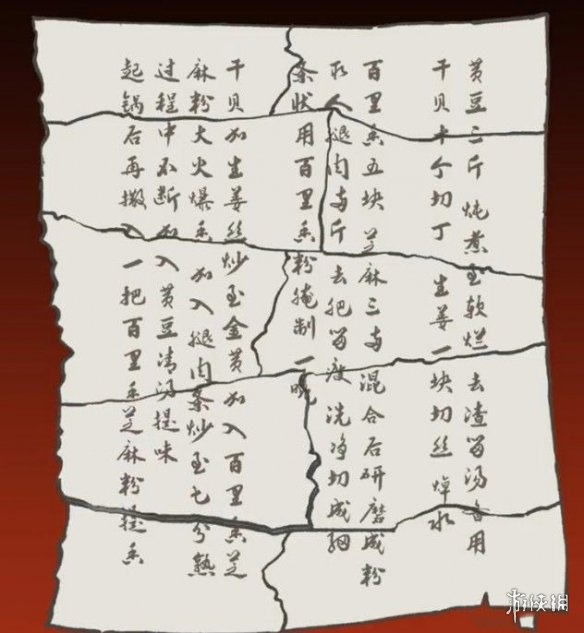 黄豆二斤 炖煮至软烂 去渣留汤备用
干贝十个切丁 生姜一块切丝 焯水
百里香五块 芝麻三两 混合后研磨成粉
取人腿肉两斤 去肥留瘦 洗净切成细
条状用百里香粉腌制一晚
干贝加生姜丝炒至金黄加入百里香芝
麻粉大火爆香 加入腿肉条炒至七分熟
过程中不断加入黄豆清汤提味
起锅后再撒入一把百里香芝麻粉提香
游侠网